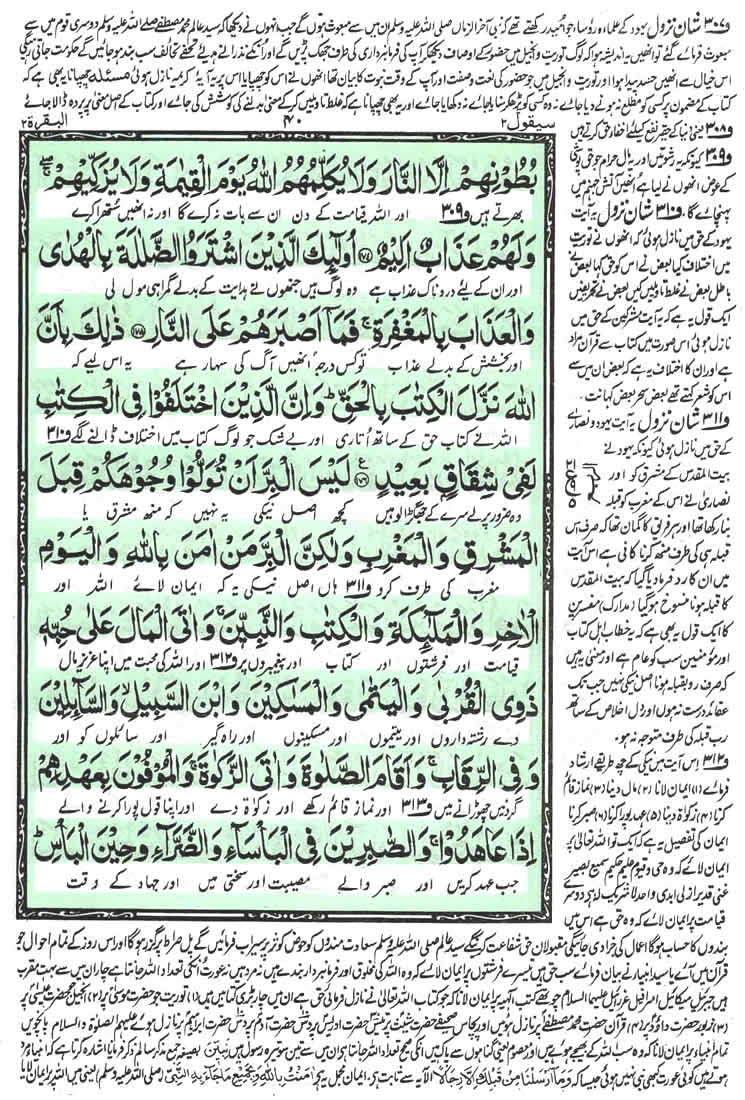 ف۳۰۷ شان نزول یہود کے علماء و رؤسا جو امید رکھتے تھے کہ نبی آخر الزماں صلی اللہ علیہ وسلم ان میں سے مبعوث ہوں گے جب انہوں نے دیکھا کہ سید عالم محمد مصطفےٰ صلے اللہ علیہ وسلم دوسری قوم میں سے
مبعوث فرمائے گئے تو انھیں یہ اندیشہ ہوا کہ لوگ توریت و انجیل میں حضور کے اوصاف دیکھ کر آپ کی فرمانبرداری کی طرف جھک پڑیں گے اور انکے نذرانے ہدیے تحفے تحائف سب بند ہو جائیں گے حکومت جاتی رہیگی
اس خیال سے انھیں حسد پیدا ہوا اور توریت و انجیل میں جو حضور کی نعت و صفت اور آپ کے وقت نبوت کا بیان تھا انھوں نے اس کو چھپایا اس پر یہ آیۂ کریمہ نازل ہوئی مسئلہ چھپانا یہ بھی ہے کہ
کتاب کے مضمون پر کسی کو مطلع نہ ہونے دیا جائے نہ وہ کسی کو پڑھ کر سنایا جائے نہ دکھایا جائے اور یہ بھی چھپانا ہے کہ غلط تاویلیں کر کے معنی بدلنے کی کوشش کی جائے اور کتاب کے اصل معنی پر پردہ ڈالا جائے
سیقول ۲
۴۰
البقرة ۲
بُطُوْنِهِمْ اِلَّا النَّارَ وَلَا يُكَلِّمُهُمُ اللّٰهُ يَوْمَ الْقِيٰمَةِ وَلَا يُزَكِّيْهِمْ ۖۚ
بھرتے ہیں ف۳۰۹ اور اللہ قیامت کے دن ان سے بات نہ کرے گا اور نہ انھیں ستھرا کرے
وَلَهُمْ عَذَابٌ اَلِيْمٌ ﴿۱۷۴﴾ اُولٰٓئِكَ الَّذِيْنَ اشْتَرَوُا الضَّلٰلَةَ بِالْهُدٰى
اور ان کے لئے دردناک عذاب ہے وہ لوگ ہیں جنھوں نے ہدایت کے بدلے گمراہی مول لی
وَالْعَذَابَ بِالْمَغْفِرَةِ ۚ فَمَآ اَصْبَرَهُمْ عَلَى النَّارِ ﴿۱۷۵﴾ ذٰلِكَ بِاَنَّ
اور بخشش کے بدلے عذاب تو کس درجہ انھیں آگ کی سہار ہے یہ اس لیے کہ
اللّٰهَ نَزَّلَ الْكِتٰبَ بِالْحَقِّ ؕ وَاِنَّ الَّذِيْنَ اخْتَلَفُوْا فِى الْكِتٰبِ
اللہ نے کتاب حق کے ساتھ اُتاری اور بے شک جو لوگ کتاب میں اختلاف ڈالنے لگے ف۳۱۰
لَفِىْ شِقَاقٍۢ بَعِيْدٍ ﴿۱۷۶﴾ لَيْسَ الْبِرَّ اَنْ تُوَلُّوْا وُجُوْهَكُمْ قِبَلَ
وہ ضرور پرلے سرے کے جھگڑالو ہیں کچھ اصل نیکی یہ نہیں کہ منھ مشرق یا
الْمَشْرِقِ وَالْمَغْرِبِ وَلٰكِنَّ الْبِرَّ مَنْ اٰمَنَ بِاللّٰهِ وَالْيَوْمِ
مغرب کی طرف کرو ف۳۱۱ ہاں اصل نیکی یہ کہ ایمان لائے اللہ اور
الْاٰخِرِ وَالْمَلٰٓئِكَةِ وَالْكِتٰبِ وَالنَّبِيّٖنَ ۚ وَاٰتَى الْمَالَ عَلٰى حُبِّهٖ
قیامت اور فرشتوں اور کتاب اور پیغمبروں پر ف۳۱۲ اور اللہ کی محبت میں اپنا عزیز مال
ذَوِى الْقُرْبٰى وَالْيَتٰمٰى وَالْمَسٰكِيْنَ وَابْنَ السَّبِيْلِ ۙ وَالسَّآئِلِيْنَ
دے رشتہ داروں اور یتیموں اور مسکینوں اور راہ گیر اور سائلوں کو اور
وَفِى الرِّقَابِ ۚ وَاَقَامَ الصَّلٰوةَ وَاٰتَى الزَّكٰوةَ ۚ وَالْمُوْفُوْنَ بِعَهْدِهِمْ
گردنیں چھوڑانے میں ف۳۱۳ اور نماز قائم رکھے اور زکوٰۃ دے اور اپنا قول پورا کرنے والے
اِذَا عَاهَدُوْا ۚ وَالصّٰبِرِيْنَ فِى الْبَاْسَآءِ وَالضَّرَّآءِ وَحِيْنَ الْبَاْسِ ؕ
جب عہد کریں اور صبر والے مصیبت اور سختی میں اور جہاد کے وقت
ف۳۰۸ یعنی دنیا کے حقیر نفع کیلئے اخفاء حق کرتے ہیں
ف۳۰۹ کیونکہ یہ رشوتیں اور یہ مال حرام جو حق پوشی
کے عوض انھوں نے لیا ہے انھیں آتش جہنم میں
پہنچائے گا، ف۳۱۰ شان نزول یہ آیت
یہود کے حق میں نازل ہوئی کہ انھوں نے توریت
میں اختلاف کیا بعض نے اس کو حق کہا بعض نے
باطل بعض نے غلط تاویلیں کیں بعض نے تحریفیں
ایک قول یہ ہے کہ یہ آیت مشرکین کے حق میں
نازل ہوئی اس صورت میں کتاب سے قرآن مراد
ہے اور ان کا اختلاف یہ ہے کہ بعض ان میں سے
اس کو شعر کہتے تھے بعض سحر بعض کہانت.
ف۳۱۱ شان نزول یہ آیت یہود و نصاریٰ
کے حق میں نازل ہوئی کیونکہ یہود نے
بیت المقدس کے مشرق کو اور
نصاریٰ نے اس کے مغرب کو قبلہ
بنا رکھا تھا اور ہر فریق کا گمان تھا کہ صرف اس
قبلہ ہی کی طرف منھ کرنا کافی ہے اس آیت
میں ان کا رد فرما دیا گیا کہ بیت المقدس
کا قبلہ ہونا منسوخ ہوگیا (مدارک) مفسرین
کا ایک قول یہ بھی ہے کہ یہ خطاب اہل کتاب
اور مومنین سب کو عام ہے اور معنی یہ ہیں
کہ صرف رو بقبلہ ہونا اصل نیکی نہیں جب تک
عقائد درست نہ ہوں اور دل اخلاص کے ساتھ
رب قبلہ کی طرف متوجہ نہ ہو۔
ف۳۱۲ اس آیت میں نیکی کے چھ طریقے ارشاد
فرمائے (۱) ایمان لانا (۲) مال دینا (۳) نماز قائم
کرنا (۴) زکوٰۃ دینا (۵) عہد پورا کرنا (۶) صبر کرنا
ایمان کی تفصیل یہ ہے کہ ایک تو اللہ تعالیٰ پر
ایمان لائے کہ وہ حی و قیوم علیم حکیم سمیع بصیر
غنی قدیر ازلی ابدی واحد لا شریک لہ ہے دوسرے
قیامت پر ایمان لائے کہ وہ حق ہے اس میں
بندوں کا حساب ہوگا اعمال کی جزا دی جائیگی مقبولان حق شفاعت کرینگے سید عالم صلی اللہ علیہ وسلم سعادت مندوں کو حوض کوثر پر سیراب فرمائیں گے پل صراط پر گزر ہوگا اور اس روز کے تمام احوال جو
قرآن میں آئے یا سید انبیاء نے بیان فرمائے سب حق ہیں تیسرے فرشتوں پر ایمان لائے کہ وہ اللہ کی مخلوق اور فرمانبردار بندے ہیں نہ مرد ہیں نہ عورت اُنکی تعداد اللہ جانتا ہے چار ان میں سے بہت مقرب
ہیں جبرئیل میکائیل اسرافیل عزرائیل علیہم السلام چوتھے کتب الٰہیہ پر ایمان لانا کہ جو کتاب اللہ تعالیٰ نے نازل فرمائی حق ہے ان میں چار بڑی کتابیں ہیں (۱) توریت جو حضرت موسیٰ پر (۲) انجیل جو حضرت عیسیٰ پر
(۳) زبور حضرت داؤد پر (۴) قرآن حضرت محمد مصطفےٰ پر نازل ہوئیں اور پچاس صحیفے حضرت شیث پر تیس حضرت ادریس پر دس حضرت آدم پر دس حضرت ابراہیم پر نازل ہوئے علیہم الصلاۃ و السلام پانچویں
تمام انبیاء پر ایمان لانا کہ وہ سب اللہ کے بھیجے ہوئے ہیں اور معصوم یعنی گناہوں سے پاک ہیں انکی صحیح تعداد اللہ جانتا ہے ان میں سے تین سو تیرہ رسول ہیں نبیین بصیغہ جمع مذکر سالم ذکر فرمانا اشارہ کرتا ہے کہ انبیاء مرد
ہوتے ہیں کوئی عورت کبھی نبی نہیں ہوئی جیسا کہ وَمَآ اَرْسَلْنَا مِنْ قَبْلِكَ اِلَّا رِجَالًا الآیہ سے ثابت ہے. ایمان مجمل یہ ہے اٰمَنْتُ بِاللّٰهِ وَبِجَمِيْعِ مَا جَآءَ بِهِ النَّبِىُّ (صلی اللہ علیہ وسلم) یعنی میں اللہ پر ایمان لایا